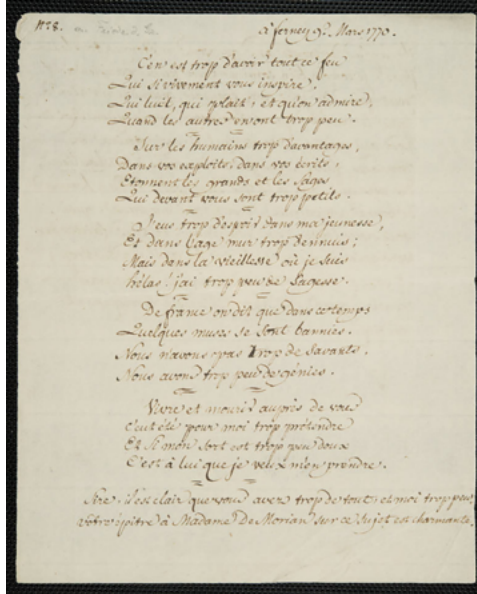 N.º 8.
à ferney 9.e Mars 1770.
C'en est trop d'avoir tout ce feu
Qui si vivement vous inspire,
Qui luit, qui plait, et qu'on admire,
Quand les autres en ont trop peu.
Sur les humains trop d'avantages,
Dans vos exploits, dans vos écrits,
Etonnent les grands et les Sages
Qui devant vous sont trop petits.
J'eus trop d'espoir dans ma jeunesse,
Et dans l'age mur trop d'ennuis;
Mais dans la vieillesse où je suis
hélas! j'ai trop peu de Sagesse.
De france on dit que dans ce temps
Quelques muses se sont bannies.
Nous n'avons pas trop de Savants.
Nous avons trop peu de génies.
Vivre et mourir auprès de vous
C'eut été pour moi trop prétendre
Et si mon sort est trop peu doux
C'est à lui que je veux m'en prendre.
Sire, il est clair que vous avez trop de tout, et moi trop peu,
Votre épitre à Madame De Morian sur ce Sujet est charmante.